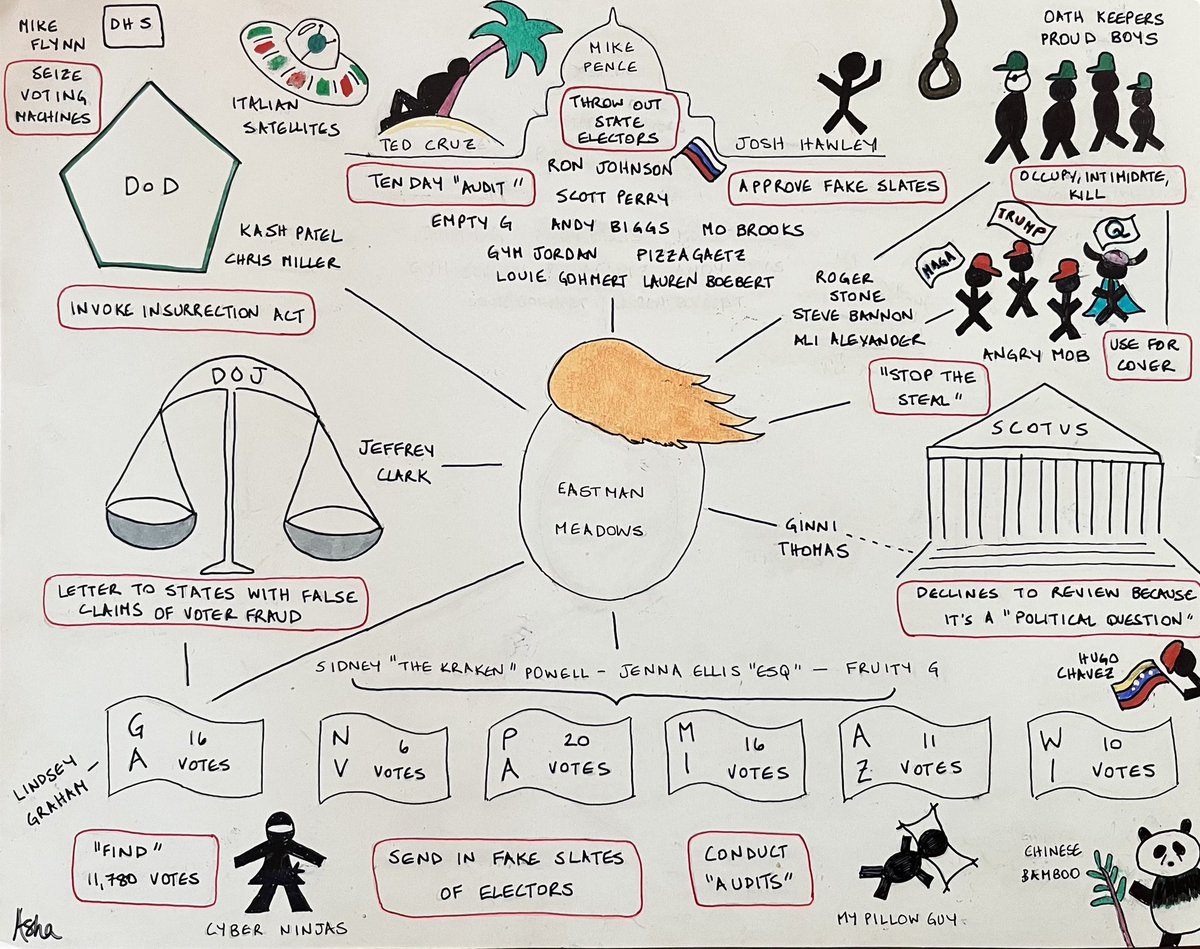 MIKE
FLYNN
DHS
SEIZE
VOTING
MACHINES
DOD
ITALIAN
SATELLITES
KASH PATEL
CHRIS MILLER
INVOKE INSURRECTION ACT
TED CRUZ
TEN DAY "AUDIT"
MIKE
PENCE
THROW OUT
STATE
ELECTORS
JOSH HAWLEY
APPROVE FAKE SLATES
RON JOHNSON
SCOTT PERRY
EMPTY G ANDY BIGGS MO BROOKS
GYM JORDAN PIZZAGAETZ
LOUIE GOHMERT LAUREN BOEBERT
OATH KEEPERS
PROUD BOYS
OCCUPY, INTIMIDATE,
KILL
ROGER
STONE
STEVE BANNON
ALI ALEXANDER
MAGA
TRUMP
Q
ANGRY MOB
USE FOR
COVER
"STOP THE
STEAL"
DOJ
JEFFREY
CLARK
EASTMAN
MEADOWS
GINNI
THOMAS
SCOTUS
DECLINES TO REVIEW BECAUSE
IT'S A "POLITICAL QUESTION"
LETTER TO STATES WITH FALSE
CLAIMS OF VOTER FRAUD
SIDNEY "THE KRAKEN" POWELL – JENNA ELLIS "ESQ" – FRUITY G
HUGO
CHAVEZ
LINDSEY
GRAHAM
GA 16
VOTES
NV 6
VOTES
PA 20
VOTES
MI 16
VOTES
AZ 11
VOTES
WI 10
VOTES
"FIND"
11,780 VOTES
CYBER NINJAS
SEND IN FAKE SLATES
OF ELECTORS
CONDUCT
"AUDITS"
MY PILLOW GUY
CHINESE
BAMBOO
Asha